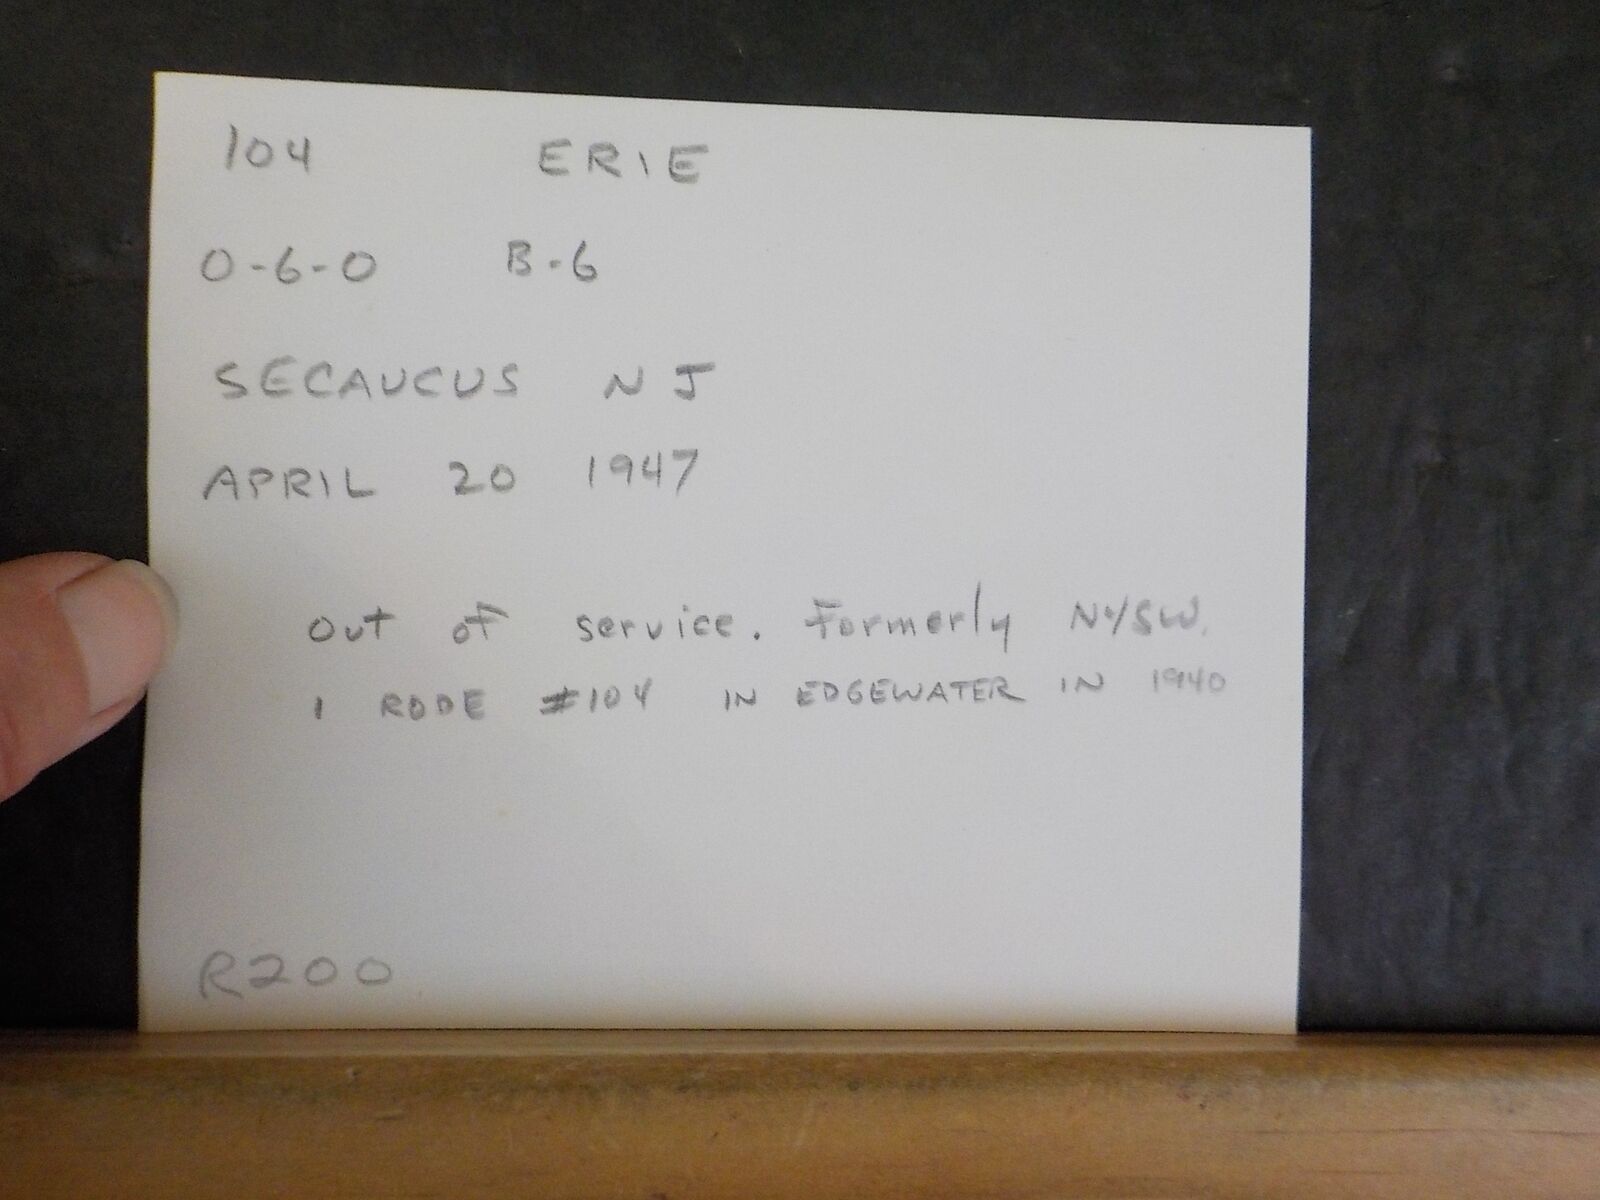 104 ERIE
0-6-0 B-6
SECAUCUS NJ
APRIL 20 1947
Out of service. Formerly NYSW.
I RODE #104 IN EDGEWATER IN 1940
R200